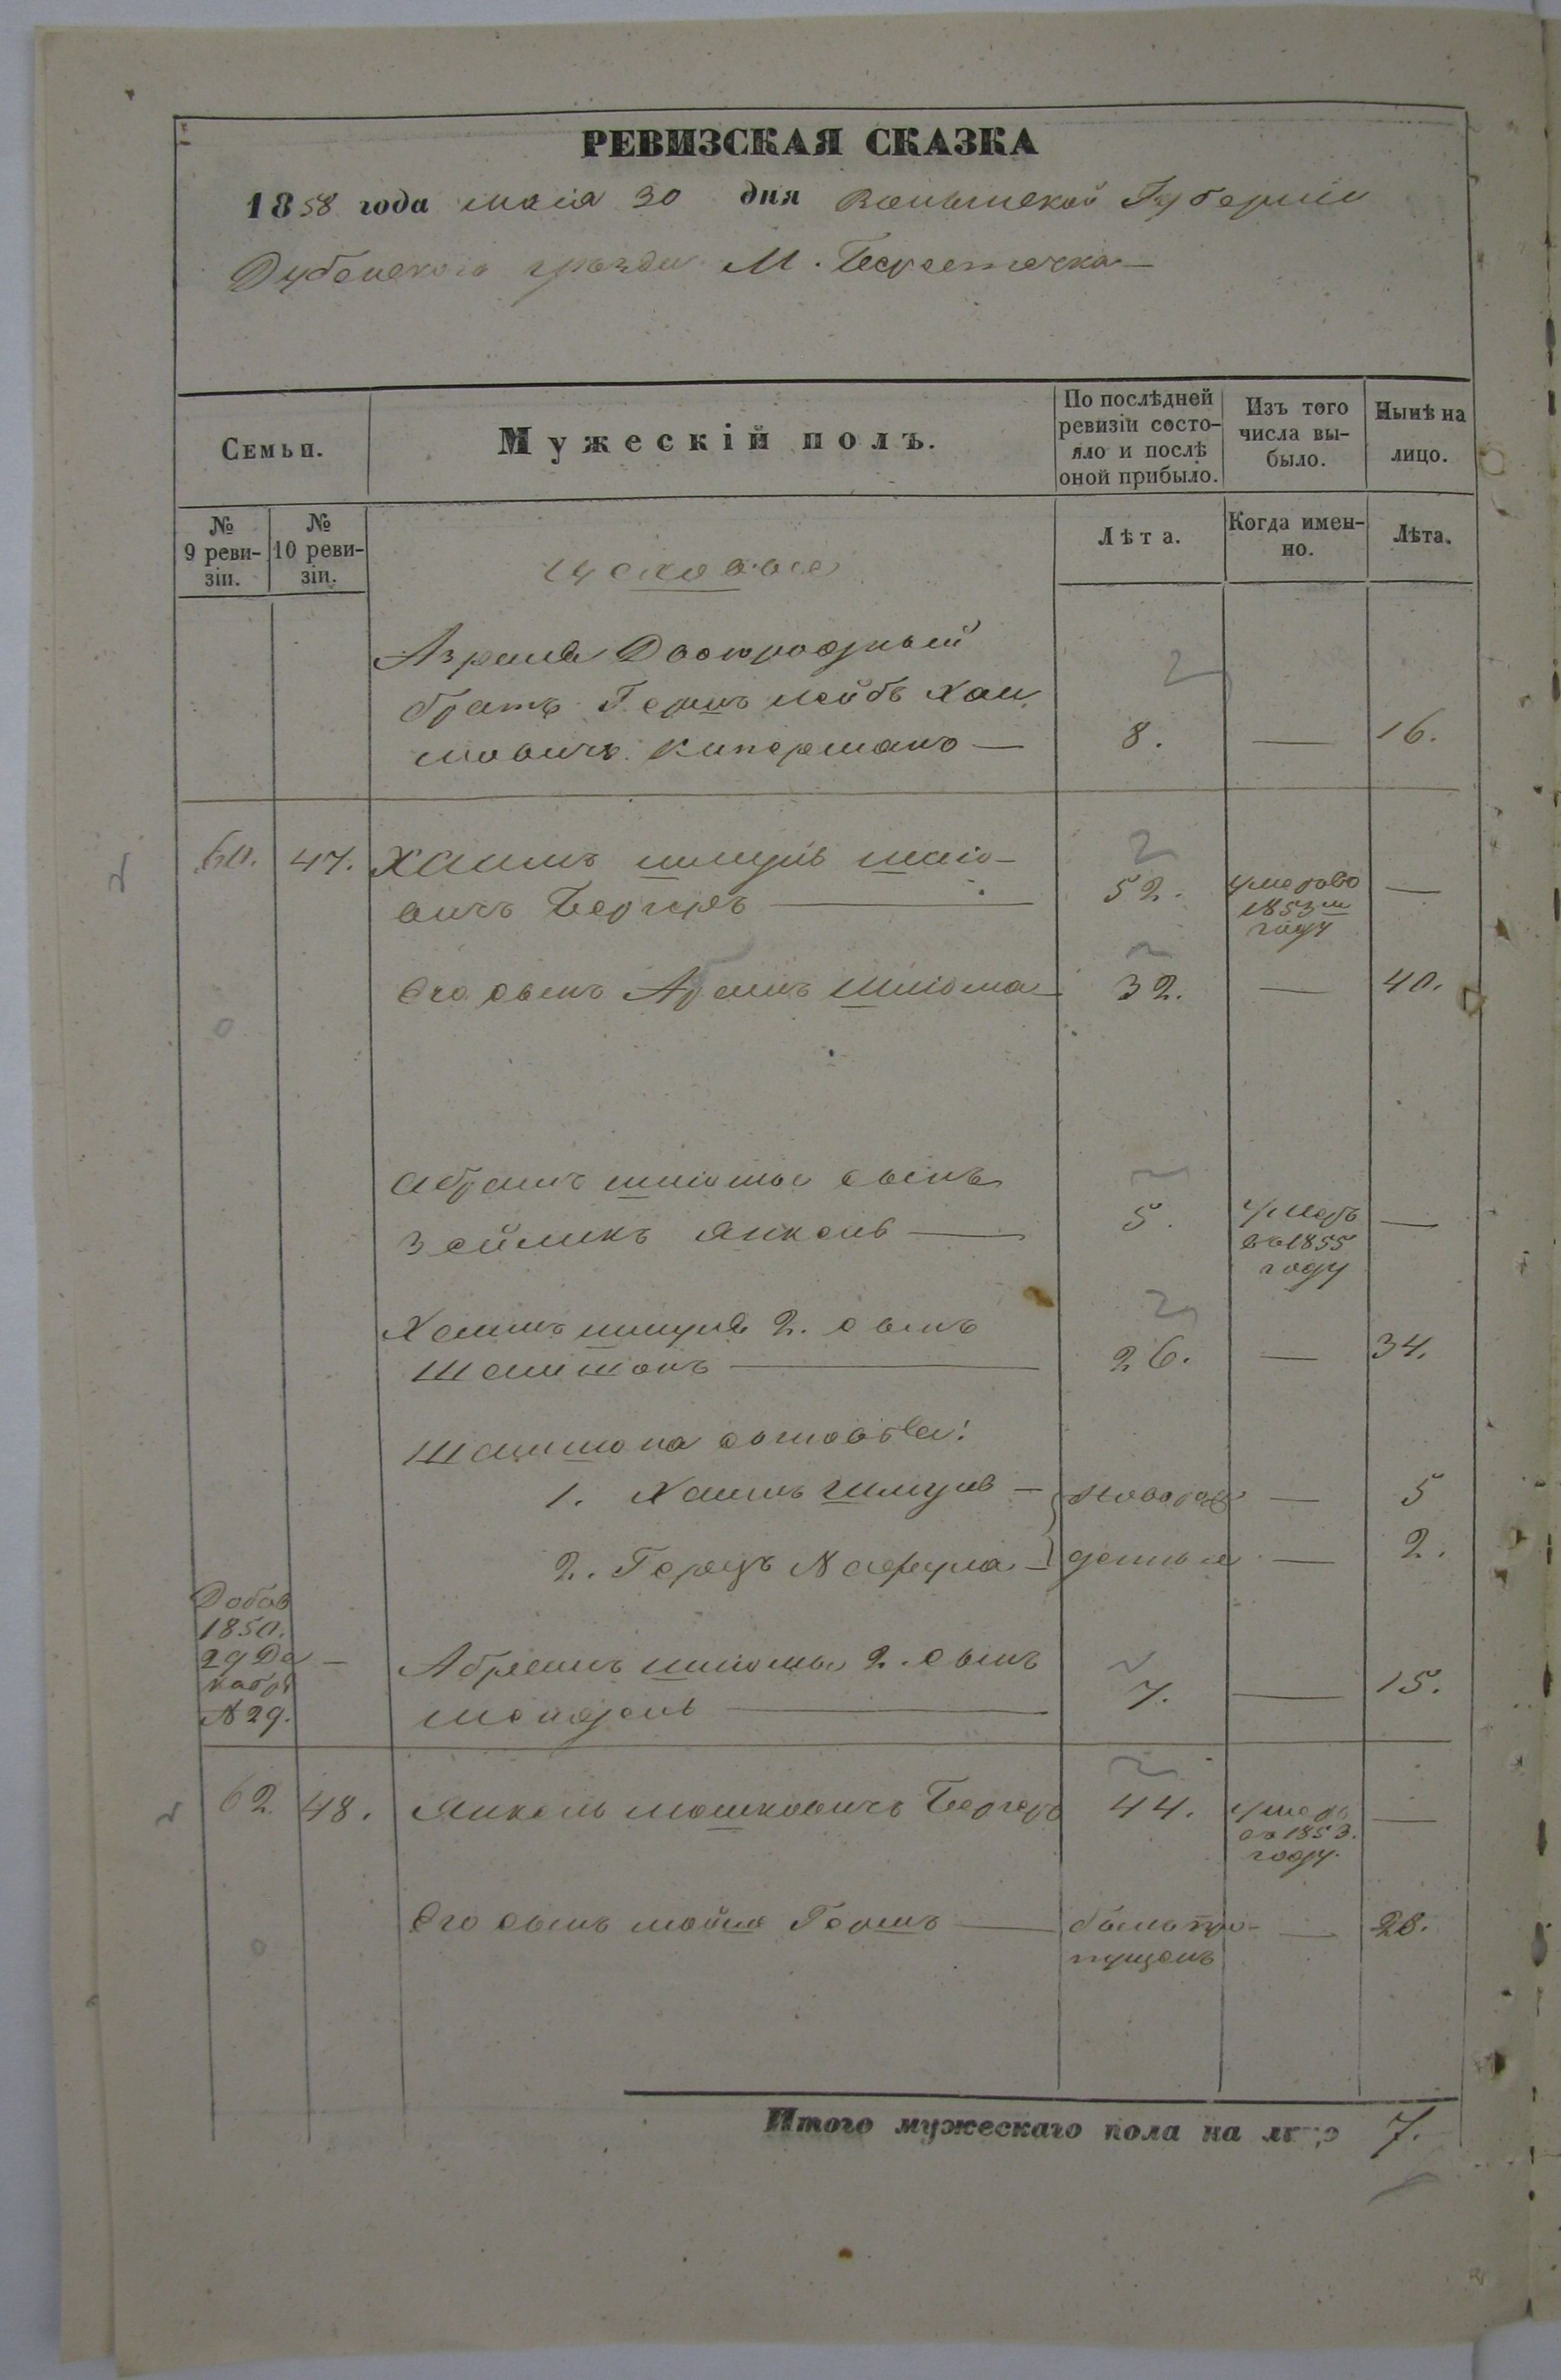 РЕВИЗСКАЯ СКАЗКА
1858 года маія 30 дня Волынской Губерніи
Дубенского уѣзда М. Берестечка
Семьи.
Мужескій полъ.
По послѣдней ревизіи состо-
яло и послѣ оной прибыло.
Изъ того числа вы-
было.
Нынѣ на лицо.
№ 9 реви-
зіи.
№ 10 реви-
зіи.
Лѣта.
Когда имен-
но.
Лѣта.
Двоюродный
братъ Гершъ Лейбъ Хаи
мовичъ Киперманъ — 8. — 16.
60. 47. Хаимъ Шмуль Шліо-
вичъ Бергеръ — 52. умеръ во
1853 м
году —
Его сынъ Абрамъ Шліома — 32. — 40.
Абрамъ Шліомы сынъ
Зейликъ Янкель — 5. умеръ
въ 1855
году —
Хаимъ Шмуля 2. сынъ
26. — 34.
сыновья:
1. Хаимъ Шмуль — новорож — 5
2. Герцъ Нафула — денные — 2.
Добав
1850.
29 Де —
кабря
№ 29.
Абрамъ Шліомы 2. сынъ
Мендель — 7. — 15.
62. 48. Янкель Мошковичъ Бергеръ 44. умеръ
въ 1853.
году. —
Его сынъ Гершъ — былъ про-
пущенъ — 28.
Итого мужескаго пола на лицо 7.